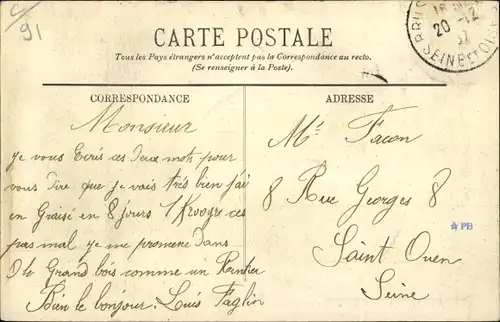 C/91
CARTE POSTALE
Tous les Pays étrangers n'acceptent pas la Correspondance au recto.
(Se renseigner à la Poste).
BRU
20 -12
SEINE ET OI
CORRESPONDANCE
ADRESSE
Monsieur
je vous Ecris ces deux moth pour
vous dire que je vais très bien j'ai
en Graisé en 8 jours 1 Kroogs ces
pas mal je me promene dans
le Grand bois comme un Rentier
Bien le bonjour. Luis Faglin
Mr Facon
8 Rue Georges 8
Saint Ouen
Seine
PB